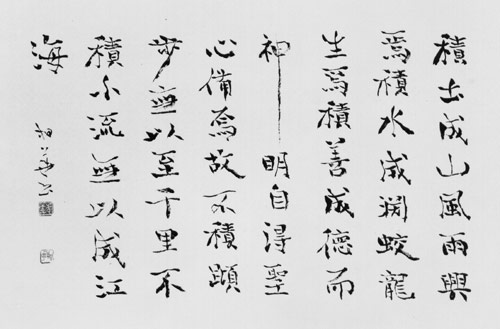 積土成山風雨興
焉積水成淵蛟龍
生焉積善成德而
神明自得聖
心備焉故不積蹞
步無以至千里不
積小流無以成江
海